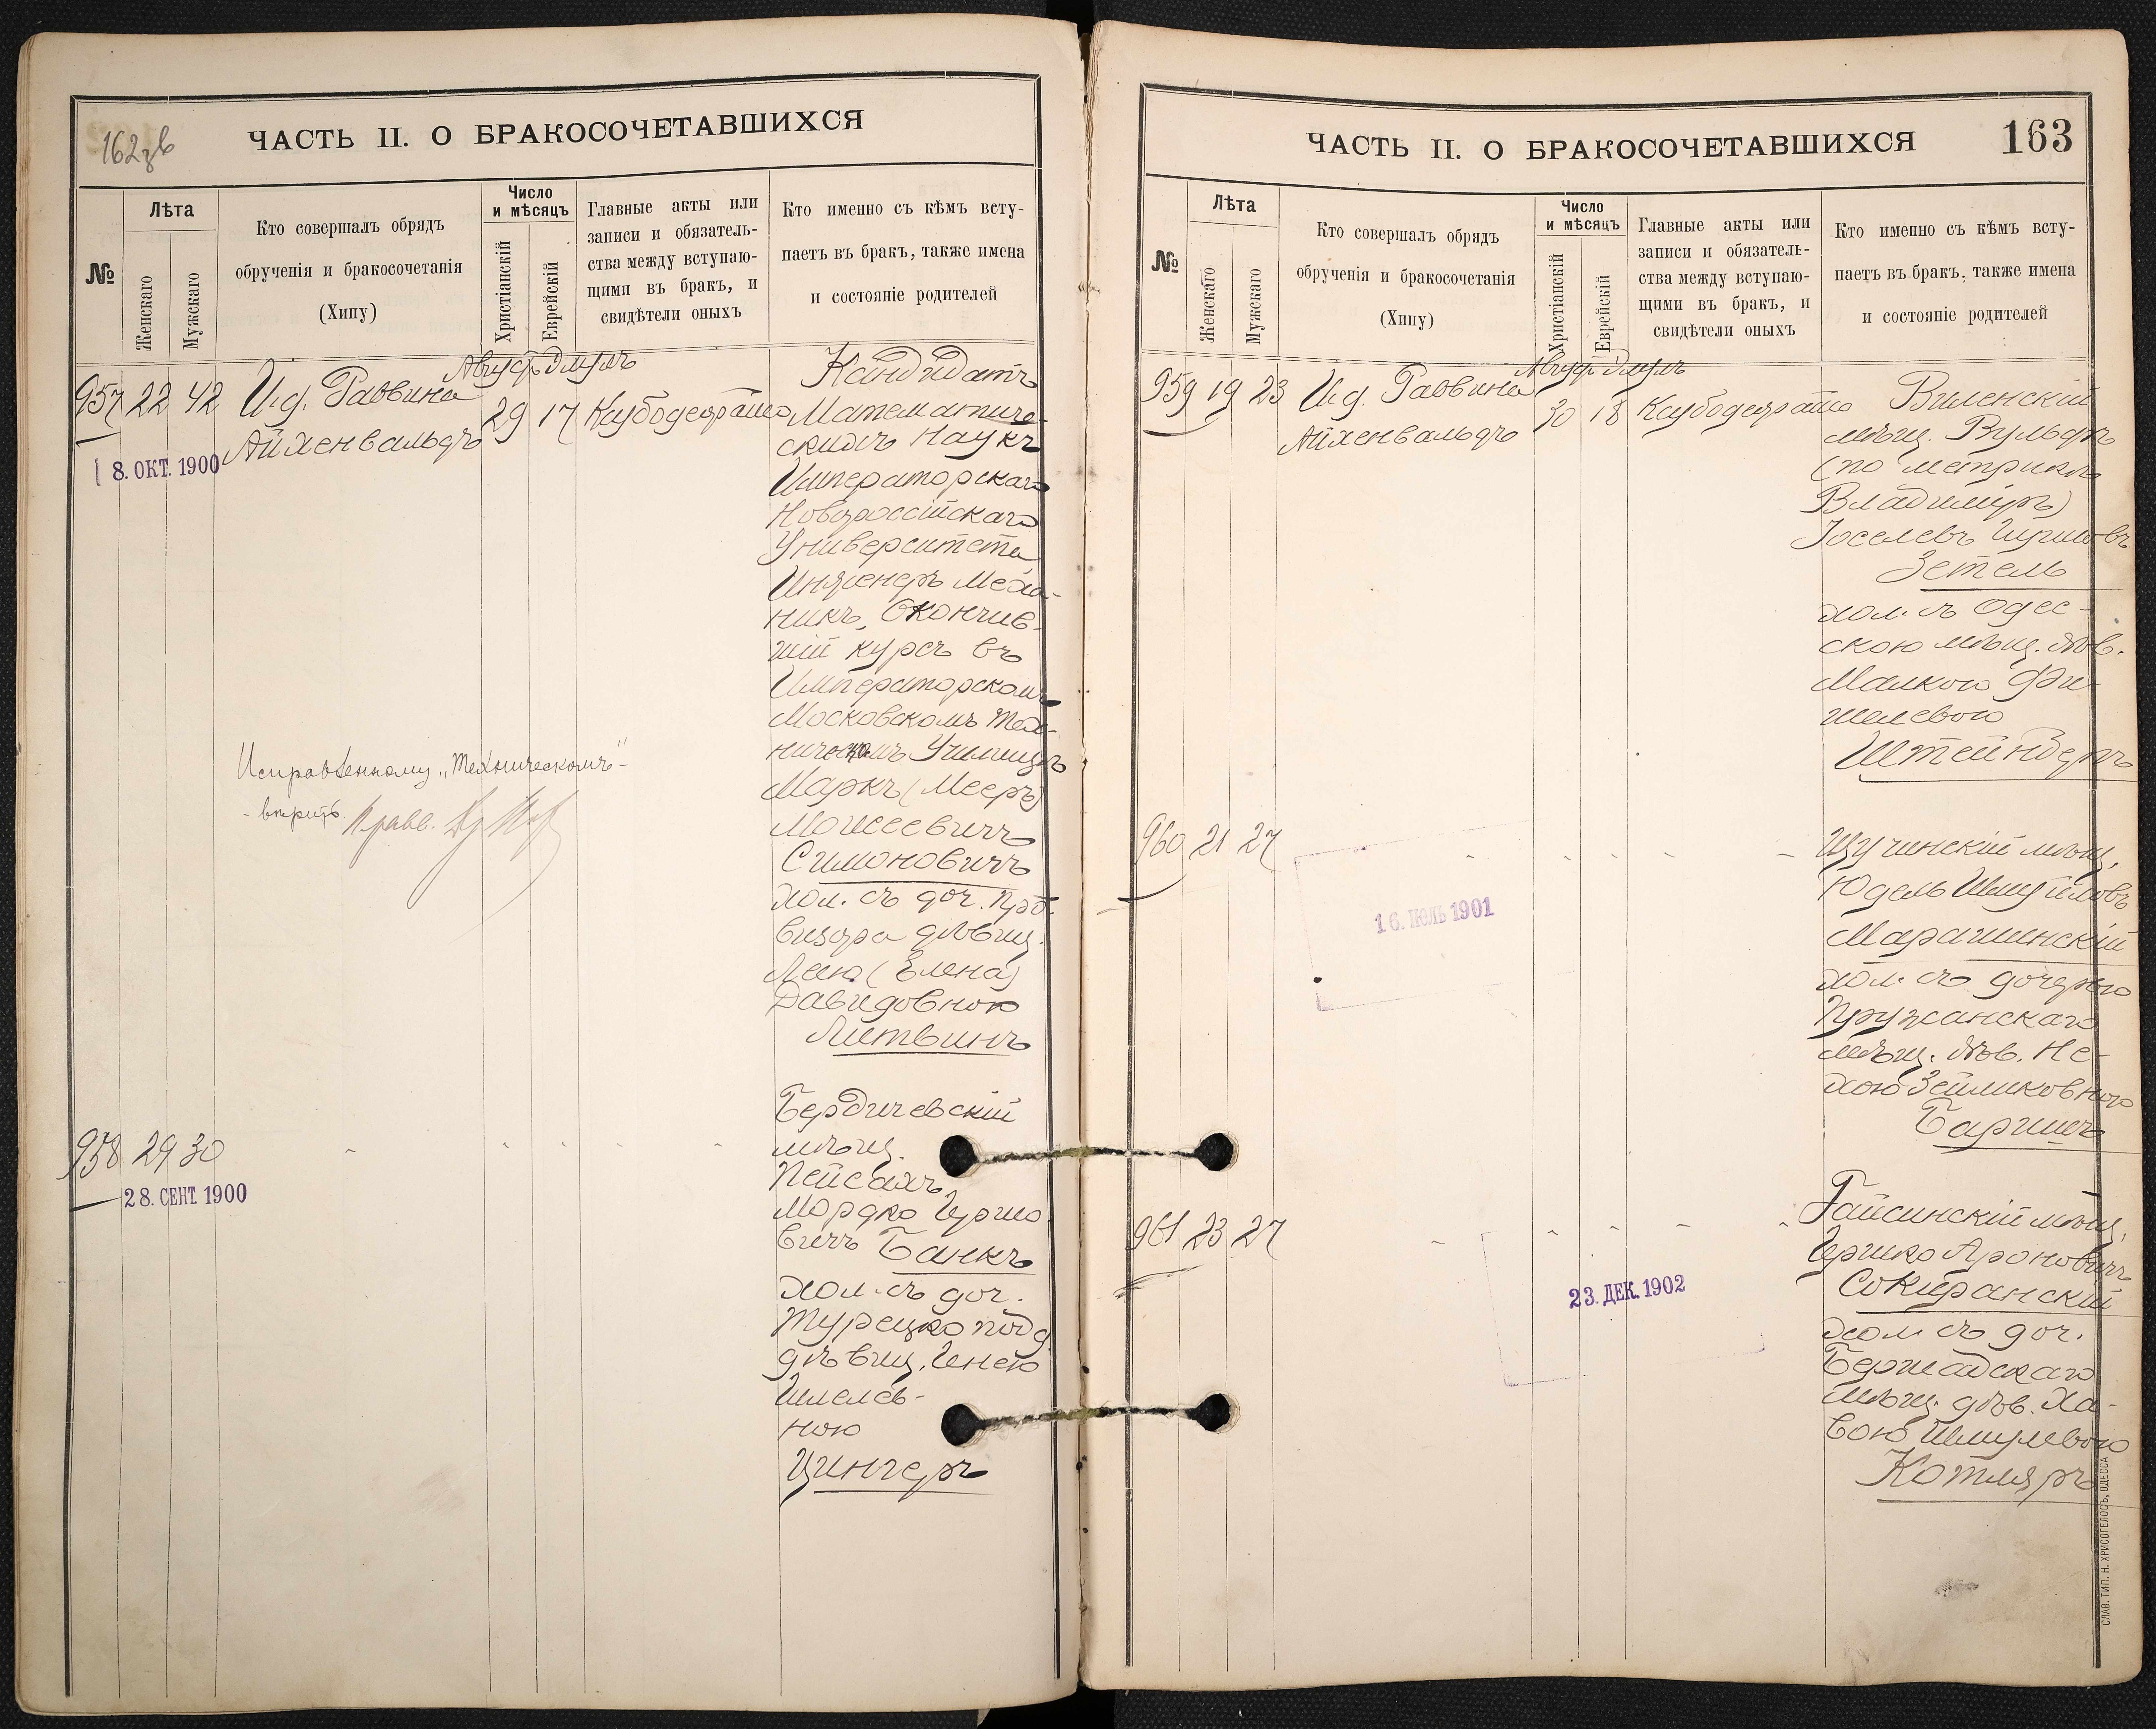 162 об
ЧАСТЬ II. О БРАКОСОЧЕТАВШИХСЯ
№
Лѣта
Женскаго
Мужскаго
Кто совершалъ обрядъ
обрученія и бракосочетанія
(Хипу)
Число
и мѣсяцъ
Христіанскій
Еврейскій
Главные акты или
записи и обязатель-
ства между вступаю-
щими въ бракъ, и
свидѣтели оныхъ
Кто именно съ кѣмъ всту-
паетъ въ бракъ, также имена
и состояніе родителей
957 22 42
И.д. Раввина
Айхенвальдъ
Август Элулъ
29 17
8. ОКТ. 1900
Кандидатъ
Математиче-
скихъ Наукъ
Императорскаго
Новороссійскаго
Университета
Инженеръ Меха-
никъ, Окончив-
шій курсъ въ
Императорскомъ
Московскомъ Тех-
ническомъ Училищѣ
Маркъ (Мееръ)
Моисеевичъ
Симоновичъ
хол. съ доч. Про-
визора дѣвиц.
Леею (Елена)
Давидовною
Литвинъ
Исправленному „Техническомъ“-
- вѣрить
958 29 30
28. СЕНТ. 1900
Бердичевскій
мѣщ.
Пейсахъ
Мордко Гершо-
вичъ Банкъ
хол. съ доч.
Турецко подд.
дѣвиц. Генею
Шлемов-
ною
Цингеръ
ЧАСТЬ II. О БРАКОСОЧЕТАВШИХСЯ
163
№
Лѣта
Женскаго
Мужскаго
Кто совершалъ обрядъ
обрученія и бракосочетанія
(Хипу)
Число
и мѣсяцъ
Христіанскій
Еврейскій
Главные акты или
записи и обязатель-
ства между вступаю-
щими въ бракъ, и
свидѣтели оныхъ
Кто именно съ кѣмъ всту-
паетъ въ бракъ, также имена
и состояніе родителей
959 19 23
И.д. Раввина
Айхенвальдъ
Август Элулъ
30 18
Виленскій
мѣщ. Вульфъ
(по метрикѣ
Владиміръ)
Іоселевъ Гиршовъ
Зетель
хол. съ Одес-
скою мѣщ. дѣв.
Малкою Фи-
шелевою
Штейнбергъ
960 21 27
16. ІЮЛЬ 1901
Щучинскій мѣщ.
Юдель Шмуйловъ
Марашинскій
хол. съ дочерью
Пружанскаго
мѣщ. дѣв. Не-
хою Зейликовною
Баришъ
961 23 27
23. ДЕК. 1902
Гайсинскій мѣщ.
Гершко Ароновичъ
Сокирянскій
хол. съ доч.
Бершадскаго
мѣщ. дѣв. Ха-
вою Шмулевою
Котляръ
СЛАВ. ТИП. Н. ХРИСОГЕЛОСЪ, ОДЕССА